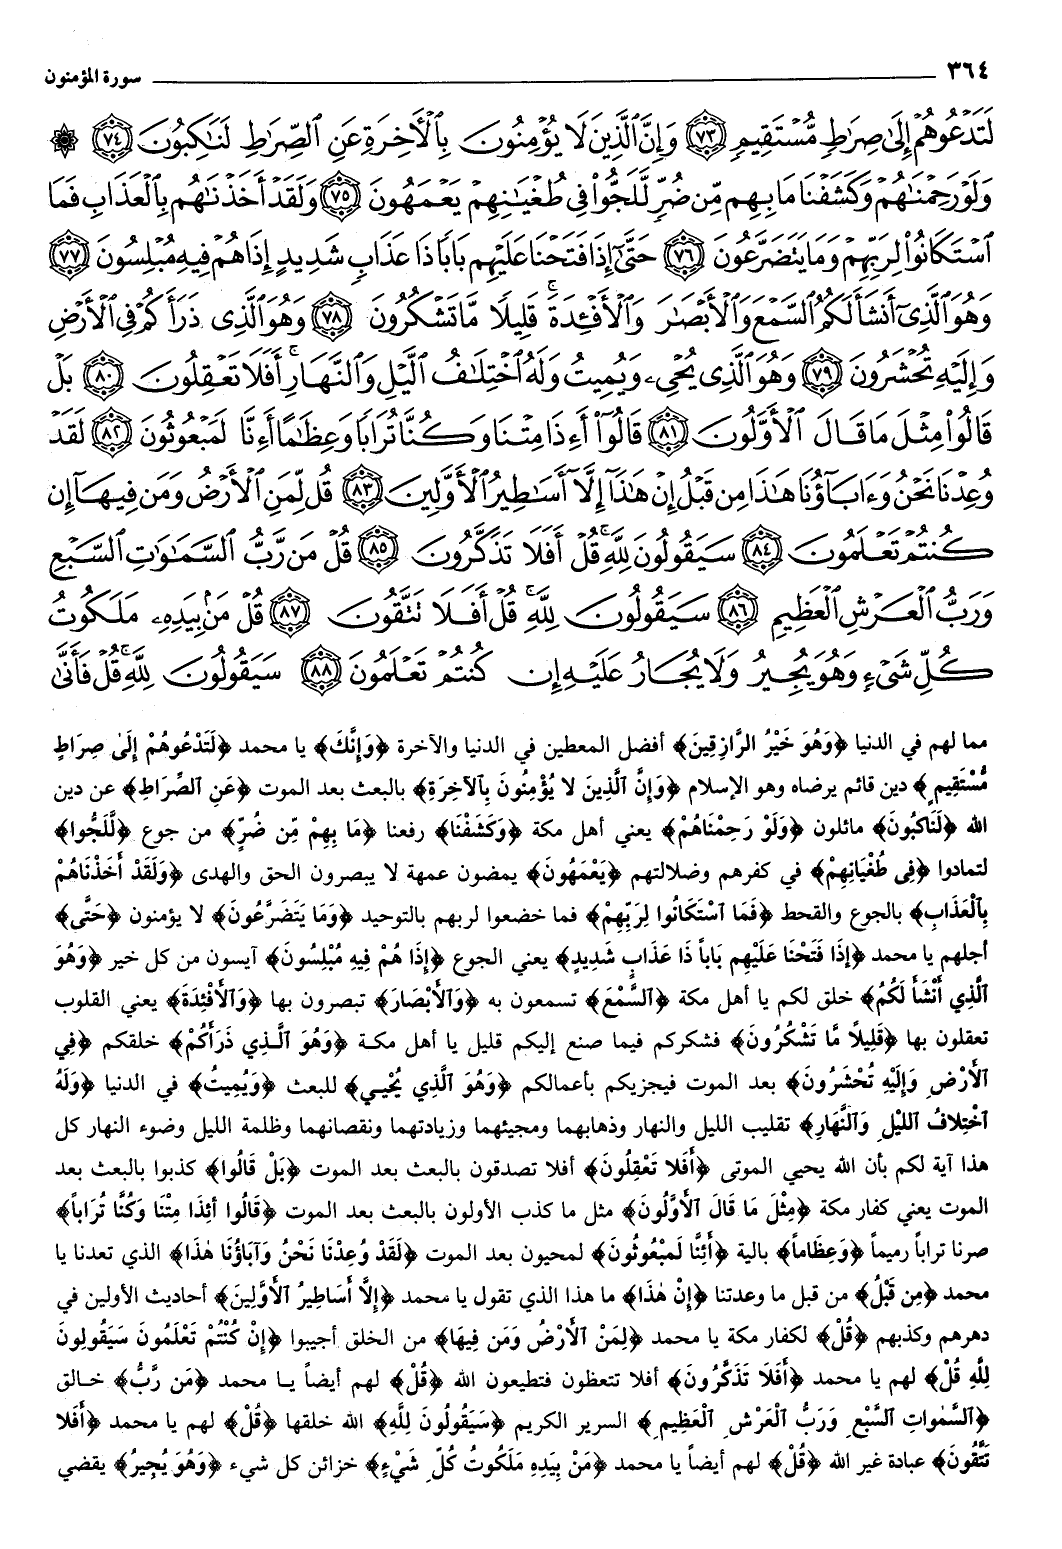 ٣٦٤ سورة المؤمنون
لَتَدْعُوهُمْ إِلَىٰ صِرَٰطٍ مُّسْتَقِيمٍ ٧٣ وَإِنَّ ٱلَّذِينَ لَا يُؤْمِنُونَ بِٱلْآخِرَةِ عَنِ ٱلصِّرَٰطِ لَنَـٰكِبُونَ ٧٤ ۞
وَلَوْ رَحِمْنَـٰهُمْ وَكَشَفْنَا مَا بِهِم مِّن ضُرٍّ لَّلَجُّوا۟ فِي طُغْيَـٰنِهِمْ يَعْمَهُونَ ٧٥ وَلَقَدْ أَخَذْنَـٰهُم بِٱلْعَذَابِ فَمَا
ٱسْتَكَانُوا۟ لِرَبِّهِمْ وَمَا يَتَضَرَّعُونَ ٧٦ حَتَّىٰٓ إِذَا فَتَحْنَا عَلَيْهِم بَابًا ذَا عَذَابٍ شَدِيدٍ إِذَا هُمْ فِيهِ مُبْلِسُونَ ٧٧
وَهُوَ ٱلَّذِىٓ أَنشَأَ لَكُمُ ٱلسَّمْعَ وَٱلْأَبْصَـٰرَ وَٱلْأَفْـِٔدَةَ ۚ قَلِيلًا مَّا تَشْكُرُونَ ٧٨ وَهُوَ ٱلَّذِى ذَرَأَكُمْ فِى ٱلْأَرْضِ
وَإِلَيْهِ تُحْشَرُونَ ٧٩ وَهُوَ ٱلَّذِى يُحْىِۦ وَيُمِيتُ وَلَهُ ٱخْتِلَـٰفُ ٱلَّيْلِ وَٱلنَّهَارِ ۚ أَفَلَا تَعْقِلُونَ ٨٠ بَلْ
قَالُوا۟ مِثْلَ مَا قَالَ ٱلْأَوَّلُونَ ٨١ قَالُوٓا۟ أَءِذَا مِتْنَا وَكُنَّا تُرَابًا وَعِظَـٰمًا أَءِنَّا لَمَبْعُوثُونَ ٨٢ لَقَدْ
وُعِدْنَا نَحْنُ وَءَابَآؤُنَا هَـٰذَا مِن قَبْلُ إِنْ هَـٰذَآ إِلَّآ أَسَـٰطِيرُ ٱلْأَوَّلِينَ ٨٣ قُل لِّمَنِ ٱلْأَرْضُ وَمَن فِيهَآ إِن
كُنتُمْ تَعْلَمُونَ ٨٤ سَيَقُولُونَ لِلَّهِ ۚ قُلْ أَفَلَا تَذَكَّرُونَ ٨٥ قُلْ مَن رَّبُّ ٱلسَّمَـٰوَٰتِ ٱلسَّبْعِ
وَرَبُّ ٱلْعَرْشِ ٱلْعَظِيمِ ٨٦ سَيَقُولُونَ لِلَّهِ ۚ قُلْ أَفَلَا تَتَّقُونَ ٨٧ قُلْ مَنۢ بِيَدِهِۦ مَلَكُوتُ
كُلِّ شَىْءٍ وَهُوَ يُجِيرُ وَلَا يُجَارُ عَلَيْهِ إِن كُنتُمْ تَعْلَمُونَ ٨٨ سَيَقُولُونَ لِلَّهِ ۚ قُلْ فَأَنَّىٰ
مما لهم في الدنيا ﴿وَهُوَ خَيْرُ الرَّازِقِينَ﴾ أفضل المعطين في الدنيا والآخرة ﴿وَإِنَّكَ﴾ يا محمد ﴿لَتَدْعُوهُمْ إِلَىٰ صِرَاطٍ
مُّسْتَقِيمٍ﴾ دين قائم يرضاه وهو الإسلام ﴿وَإِنَّ ٱلَّذِينَ لا يُؤْمِنُونَ بِٱلآخِرَةِ﴾ بالبعث بعد الموت ﴿عَنِ ٱلصِّرَاطِ﴾ عن دين
الله ﴿لَنَاكِبُونَ﴾ مائلون ﴿وَلَوْ رَحِمْنَاهُمْ﴾ يعني أهل مكة ﴿وَكَشَفْنَا﴾ رفعنا ﴿مَا بِهِمْ مِّن ضُرٍّ﴾ من جوع ﴿لَّلَجُّوا﴾
لتمادوا ﴿فِي طُغْيَانِهِمْ﴾ في كفرهم وضلالتهم ﴿يَعْمَهُونَ﴾ يمضون عمهة لا يبصرون الحق والهدى ﴿وَلَقَدْ أَخَذْنَاهُمْ
بِٱلْعَذَابِ﴾ بالجوع والقحط ﴿فَمَا ٱسْتَكَانُوا لِرَبِّهِمْ﴾ فما خضعوا لربهم بالتوحيد ﴿وَمَا يَتَضَرَّعُونَ﴾ لا يؤمنون ﴿حَتَّى﴾
أجلهم يا محمد ﴿إِذَا فَتَحْنَا عَلَيْهِم بَاباً ذَا عَذَابٍ شَدِيدٍ﴾ يعني الجوع ﴿إِذَا هُمْ فِيهِ مُبْلِسُونَ﴾ آيسون من كل خير ﴿وَهُوَ
ٱلَّذِي أَنْشَأَ لَكُمُ﴾ خلق لكم يا أهل مكة ﴿ٱلسَّمْعَ﴾ تسمعون به ﴿وَٱلأَبْصَارَ﴾ تبصرون بها ﴿وَٱلأَفْئِدَةَ﴾ يعني القلوب
تعقلون بها ﴿قَلِيلاً مَّا تَشْكُرُونَ﴾ فشكركم فيما صنع إليكم قليل يا أهل مكة ﴿وَهُوَ ٱلَّذِي ذَرَأَكُمْ﴾ خلقكم ﴿فِي
ٱلأَرْضِ وَإِلَيْهِ تُحْشَرُونَ﴾ بعد الموت فيجزيكم بأعمالكم ﴿وَهُوَ ٱلَّذِي يُحْيِي﴾ للبعث ﴿وَيُمِيتُ﴾ في الدنيا ﴿وَلَهُ
ٱخْتِلافُ ٱللَّيْلِ وَٱلنَّهَارِ﴾ تقليب الليل والنهار وذهابهما ومجيئهما وزيادتهما ونقصانهما وظلمة الليل وضوء النهار كل
هذا آية لكم بأن الله يحيي الموتى ﴿أَفَلا تَعْقِلُونَ﴾ أفلا تصدقون بالبعث بعد الموت ﴿بَلْ قَالُوا﴾ كذبوا بالبعث بعد
الموت يعني كفار مكة ﴿مِثْلَ مَا قَالَ ٱلأَوَّلُونَ﴾ مثل ما كذب الأولون بالبعث بعد الموت ﴿قَالُوا أَئِذَا مِتْنَا وَكُنَّا تُرَاباً﴾
صرنا تراباً رميماً ﴿وَعِظَاماً﴾ بالية ﴿أَئِنَّا لَمَبْعُوثُونَ﴾ لمحيون بعد الموت ﴿لَقَدْ وُعِدْنَا نَحْنُ وَآبَاؤُنَا هٰذَا﴾ الذي تعدنا يا
محمد ﴿مِن قَبْلُ﴾ من قبل ما وعدتنا ﴿إِنْ هٰذَا﴾ ما هذا الذي تقول يا محمد ﴿إِلَّا أَسَاطِيرُ ٱلأَوَّلِينَ﴾ أحاديث الأولين في
دهرهم وكذبهم ﴿قُلْ﴾ لكفار مكة يا محمد ﴿لِمَنْ ٱلأَرْضُ وَمَن فِيهَا﴾ من الخلق أجيبوا ﴿إِنْ كُنْتُمْ تَعْلَمُونَ سَيَقُولُونَ
لِلَّهِ قُلْ﴾ لهم يا محمد ﴿أَفَلَا تَذَكَّرُونَ﴾ أفلا تتعظون فتطيعون الله ﴿قُلْ﴾ لهم أيضاً يا محمد ﴿مَن رَّبُّ﴾ خالق
﴿ٱلسَّمٰوَاتِ ٱلسَّبْعِ وَرَبُّ ٱلْعَرْشِ ٱلْعَظِيمِ﴾ السرير الكريم ﴿سَيَقُولُونَ لِلَّهِ﴾ الله خلقها ﴿قُلْ﴾ لهم يا محمد ﴿أَفَلا
تَتَّقُونَ﴾ عبادة غير الله ﴿قُلْ﴾ لهم أيضاً يا محمد ﴿مَنْ بِيَدِهِ مَلَكُوتُ كُلِّ شَيْءٍ﴾ خزائن كل شيء ﴿وَهُوَ يُجِيرُ﴾ يقضي